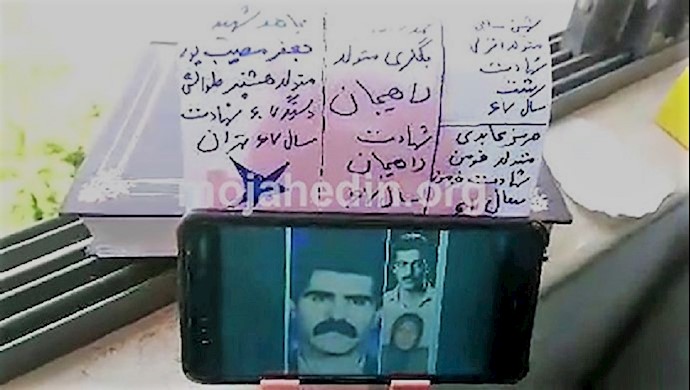 مجاهد شهید
جعفر مصیب پور
متولد هشتپر طوالش
دستگیری ۶۰ شهادت
سال ۶۷ تهران
بگلری متولد
لاهیجان
شهادت
لاهیجان
سال
متولد انزلی
شهادت
رشت
سال ۶۷
هرمز عابدی
متولد فومن
شهادت فومن
سال ۶۰
mojahedin.org